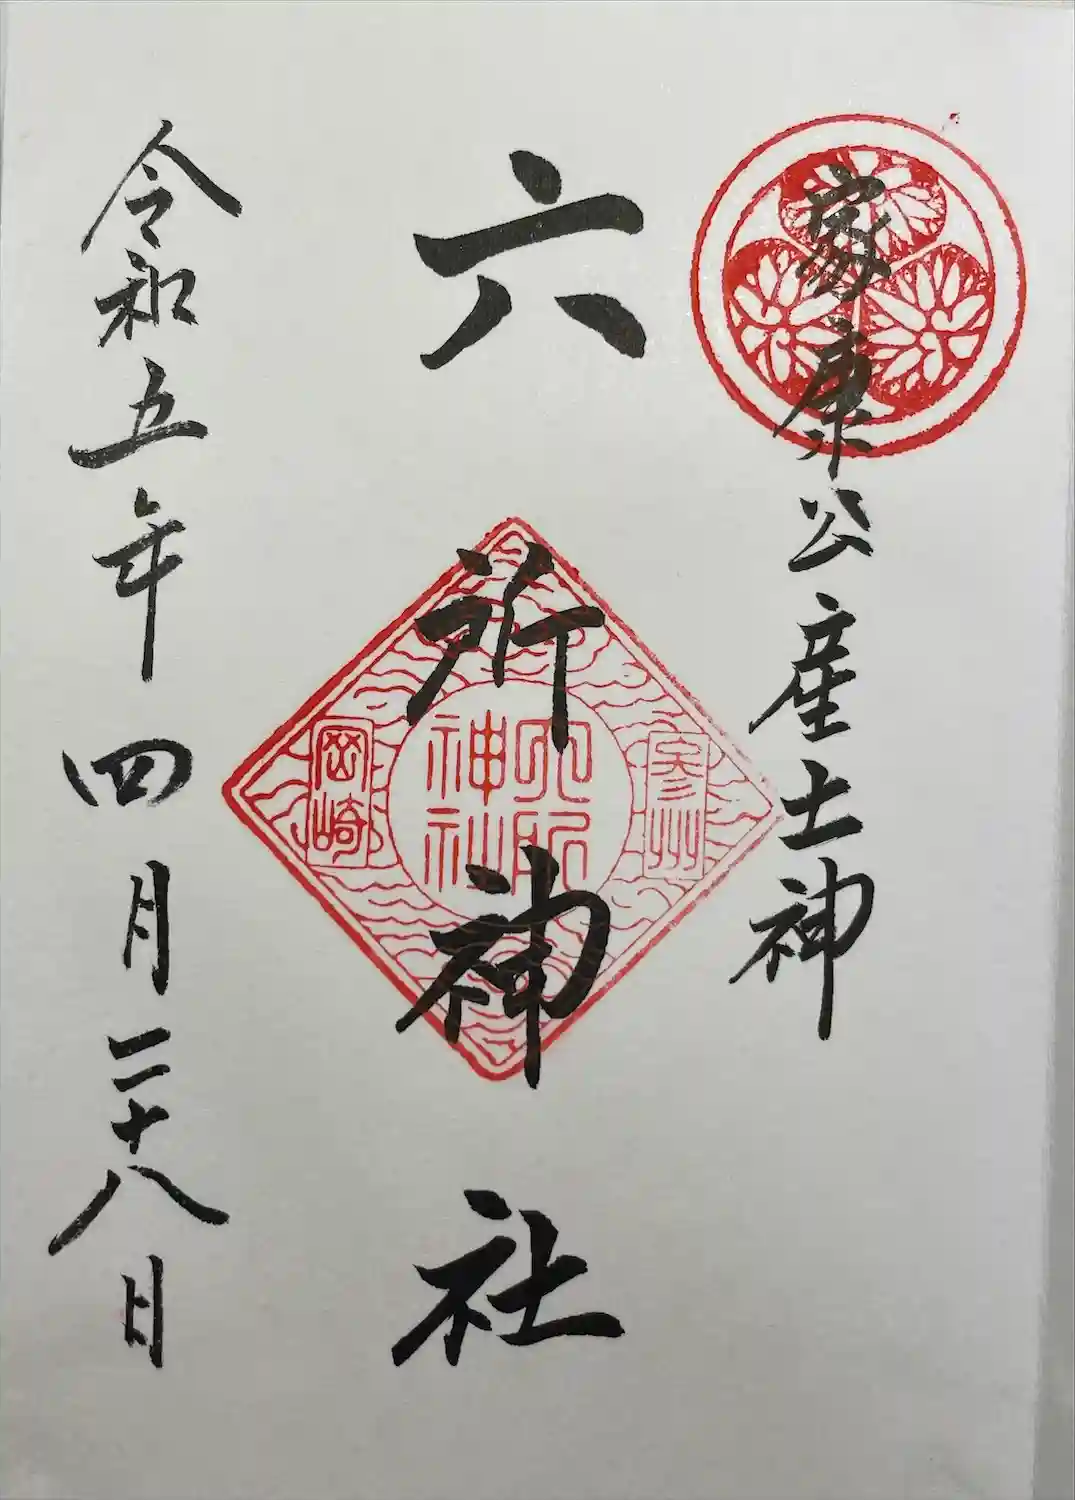 家康公産土神
六所神社
参州
六所
神社
岡崎
令和五年四月二十八日